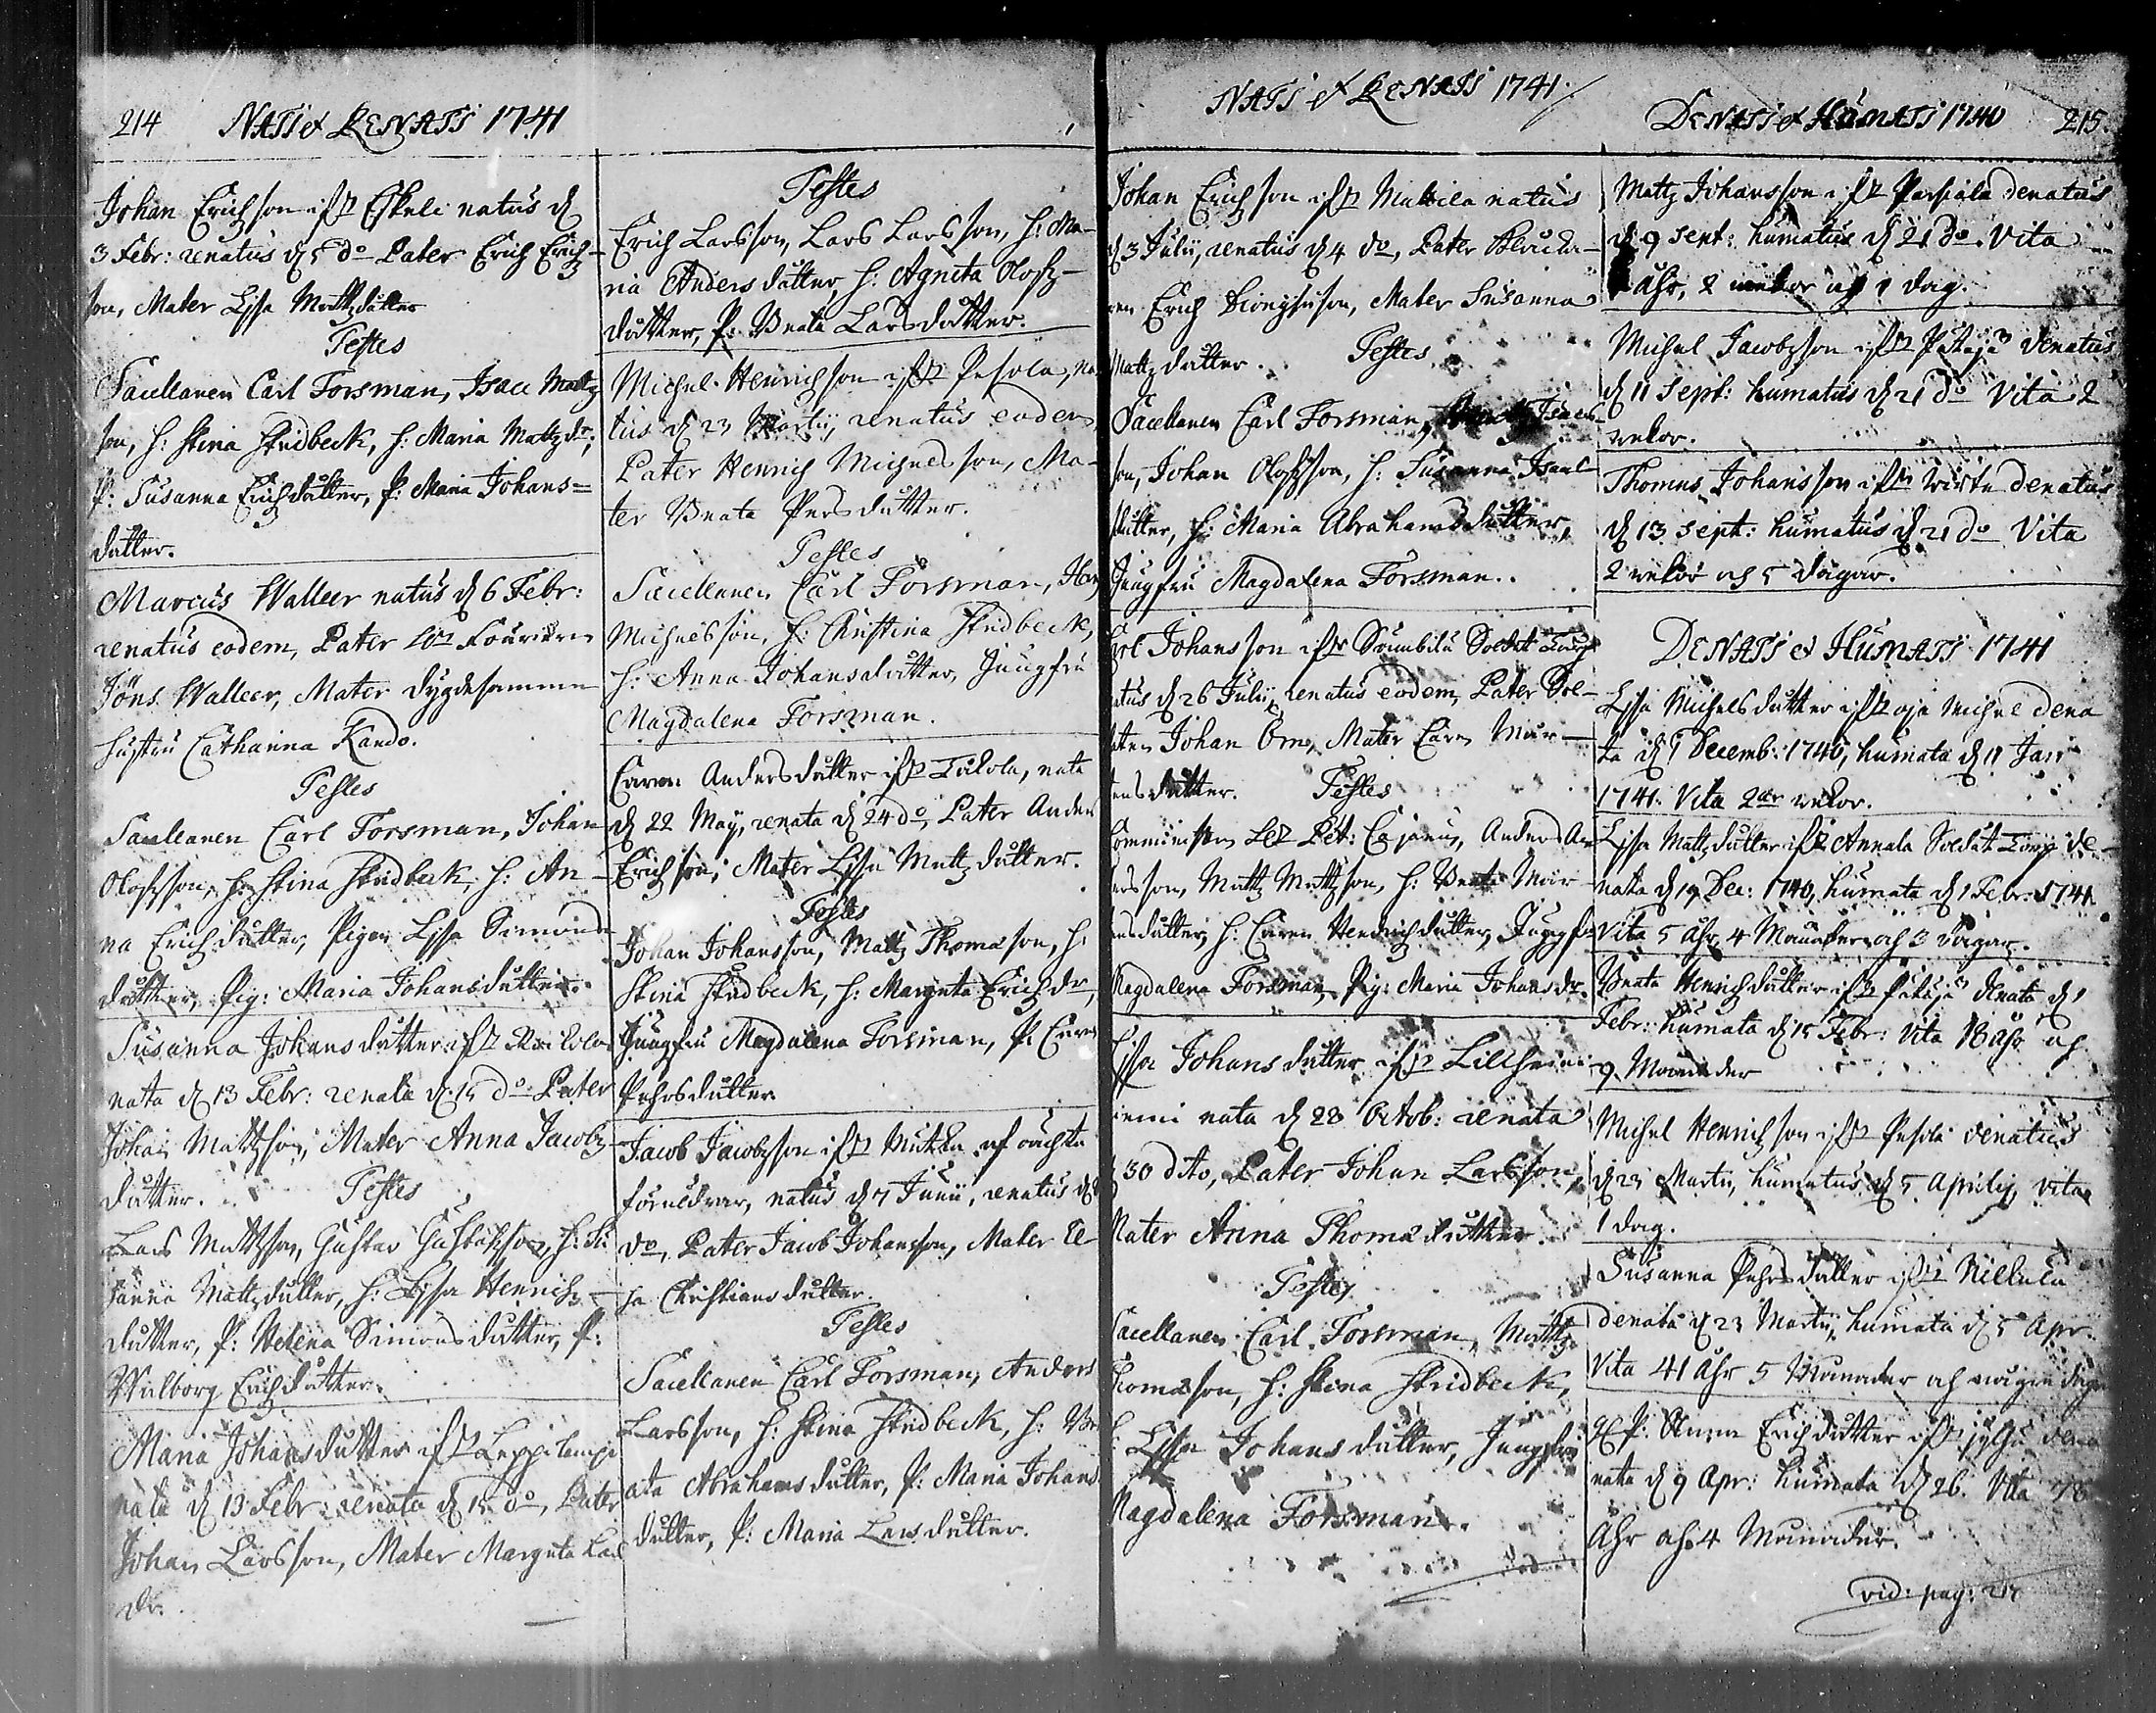 214 NATI et RENATI 1741
Johan Erichson ifr Eskeli natus d
3 Febr: renatus d 5 do Pater Erich Erich-
son, Mater Lisa Mattzdotter
Testes
Sacellanen Carl Forsman, Isac Mattz
son, h: Stina Skredbeck, h: Maria Mattz dr,
P: Susanna Erichdotter, P: Maria Johans=
dotter.
Marcus Walleer natus d 6 Febr:
renatus eodem, Pater Fouriern
Jöns Walleer, Mater dygdesamma
hustru Catharina Kando.
Testes
Sacellanen Carl Forsman, Johan
Olofsson, h: Stina Skredbeck, h: An-
na Erichdotter, Pigan Lisa Simons
dotter, Pig: Maria Johansdotter.
Susanna Johansdotter ifr
nata d 13 Febr: renata d 15 do Pater
Johan Mattzson, Mater Anna Jacobz
dotter. Testes
Lars Mattzson, Gustav Gustafsson, h: Su
sanna Mattzdotter, h: Lisa Henrichz-
dotter, P: Helena Simonsdotter, P:
Walborg Erichdotter.
Maria Johansdotter ifr Leppilampi
nata d 13 Febr: renata d 15 do, Pater
Johan Larsson, Mater Margeta Lars
dr.
Testes
Erich Larsson, Lars Larsson, h: Ma-
ria Andersdotter, h: Agneta Olofz-
dotter, P: Beata Larsdotter.
Michel Henrichson ifr Pesola, na
tus d 23 Martij, renatus eodem,
Pater Henrich Michelsson, Ma-
ter Beata Persdotter.
Testes
Sacellanen Carl Forsman,
Michelsson, h: Christina Skredbeck,
h: Anna Johansdotter, Jungfru
Magdalena Forsman.
Caren Andersdotter ifr Talola, nata
d 22 May, renata d 24 do, Pater Anders
Erichson, Mater Lisa Mattzdotter.
Testes
Johan Johansson, Mattz Thomasson, h:
Stina Skredbeck, h: Margeta Erich dr,
Jungfru Magdalena Forsman, P: Caren
Pehrsdotter
Jacob Jacobsson ifr Mutka af oächta
föräldrar, natus d 7 Junii, renatus d
do, Pater Jacob Johansson, Mater Li-
sa Christiansdotter.
Testes
Sacellanen Carl Forsman, Anders
Larsson, h: Stina Skredbeck, h: Be
ata Abrahamsdotter, P: Maria Johans
dotter, P: Maria Larsdotter.
NATI et RENATI 1741.
Johan Erichson ifr natus
d 3 Julij, renatus d 4 do, Pater
Erich Dionysiuson, Mater Susanna
Mattzdotter. Testes
Sacellanen Carl Forsman,
son, Johan Olofsson, h: Susanna Isacs
dotter, h: Maria Abrahamsdotter,
Jungfru Magdalena Forsman.
Carl Johansson ifr Soldat Torp
natus d 26 Julij, renatus eodem, Pater Sol-
daten Johan Örn, Mater Caren Mår-
tensdotter. Testes
Comministern Pet: Cajanus, Anders An
dersson, Mattz Mattzson, h: Beata Mår-
tensdotter, h: Caren Hendrichdotter, Jungfru
Magdalena Forsman, Pig: Maria Johans dr.
Lisa Johansdotter ifr Lillheini
niemi nata d 28 Octob: renata
d 30 dito, Pater Johan Larsson,
Mater Anna Thomasdotter.
Testes
Sacellanen Carl Forsman, Mattz
Thomasson, h: Stina Skredbeck,
h: Lisa Johansdotter, Jungfru
Magdalena Forsman.
DENATI et HUMATI 1740 215.
Mattz Johansson ifr Parsiala denatus
d 9 Sept: humatus d 21 do. Vita
Åhr, 2 wekor och 1 dag.
Michel Jacobsson ifr Pätäjä denatus
d 11 Sept: humatus d 21 do Vita 2
wekor.
Thomas Johansson ifr Wirta denatus
d 13 Sept: humatus d 21 do Vita
2 wekor och 5 dagar.
DENATI et HUMATI 1741
Lisa Michelsdotter ifr Michel dena
ta d 9 Decemb: 1740, humata d 11 Jan:
1741. Vita 2 wekor.
Lisa Mattzdotter ifr Annala Soldat Torp de-
nata d 19 Dec: 1740, humata d 1 Febr: 1741
Vita 5 Åhr, 4 Månader och 3 dagar.
Beata Henrichdotter ifr Pätäjä denata d 1
Febr: humata d 15 Febr: Vita 18 Åhr och
9 Månader
Michel Henrichson ifr Pesola denatus
d 23 Martij, humatus d 5 Aprilij, Vita
1 dag.
Susanna Pehrsdotter ifr
denata d 23 Martij, humata d 5 Apr.
Vita 41 Åhr 5 Månader och någre dagar
Erichdotter ifr
nata d 9 Apr: humata d 26. Vita 78
Åhr och 4 Månader.
vid: pag: 217